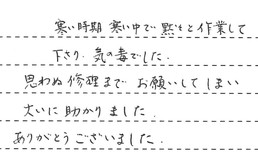 寒い時期 寒い中で 黙々と作業して
下さり、気の毒でした.
思わぬ修理まで お願いしてしまい
大いに助かりました.
ありがとうございました.